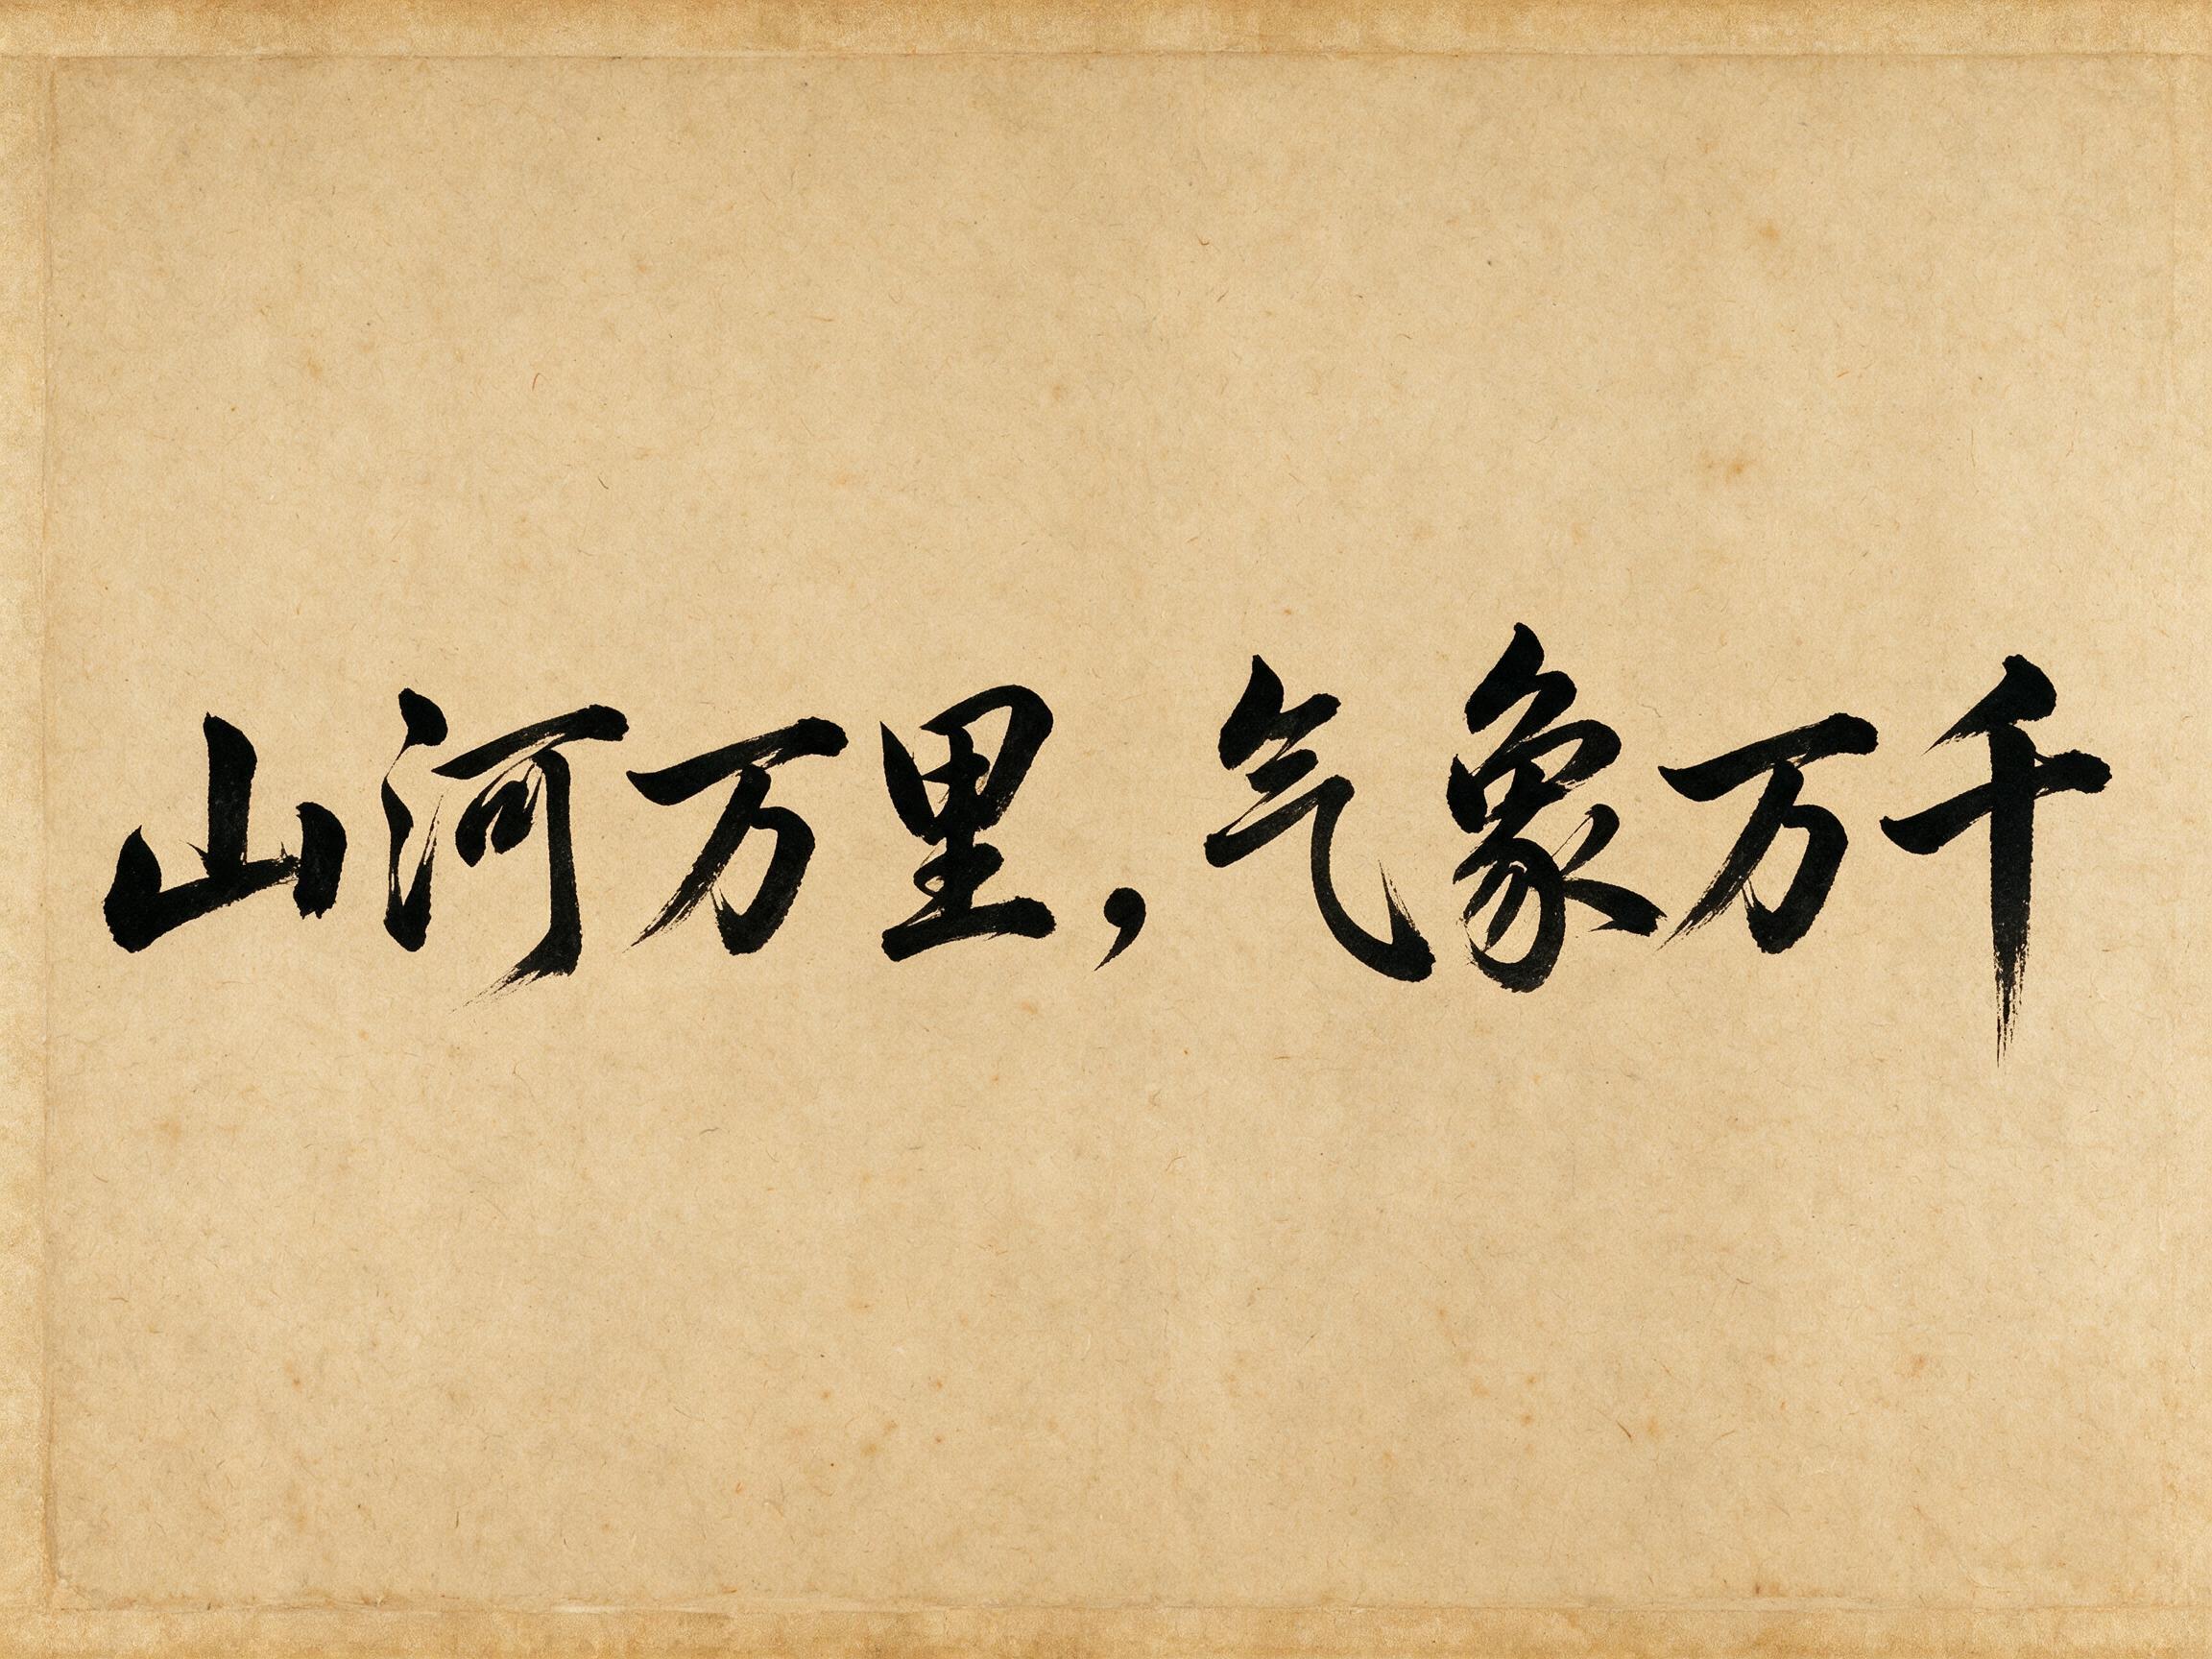 山河万里，气象万千